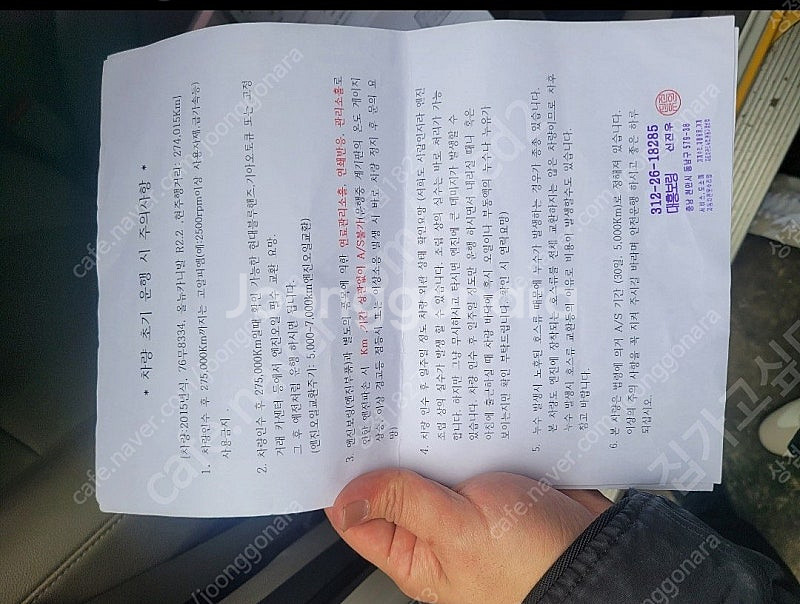 * 차량 초기 운행 시 주의사항 *
(차량:2015년식, 76무8334, 올뉴카니발 R2.2 현주행거리: 274,015Km)
1. 차량인수 후 275,000Km까지는 고알피엠(예:2500rpm이상 사용자제,급가속등)
사용금지 .
2. 차량인수 후 275,000Km일때 확인 가능한 현대블루핸즈,기아오토큐 또는 고정
거래 카센터 등에서 엔진오일 필수 교환 요망.
그 후 예전처럼 운행 하시면 됩니다.
(엔진오일교환주기: 5,000~7,000km엔진오일교환)
3. 엔진보링(엔진부품)과 별도의 품목에 의한 연료관리소홀, 연쇄반응, 관리소홀로
인한 엔진파손 시 Km , 기간 상관없이 A/S불가(운행중 계기판의 온도 게이지
상승, 이상 경고등 점등시 또는 이상소음 발생 시 바로 차량 정지 후 문의 요
망)
4. 차량 인수 후 일주일 정도 차량 외관 상태 확인요망 (저희도 사람인지라 엔진
조립 상의 실수가 발생 할 수 있습니다. 조립 상의 실수는 바로 처리가 가능
합니다. 하지만 그냥 무시하시고 타시면 엔진에 큰 데미지가 발생할 수
있습니다 차량 인수 후 일주일 정도만 운행 하시면서 내리실 때나 혹은
아침에 출근하실 때 차량 바닥에 혹시 오일이나 부동액의 누수나 누유가
보이는지만 확인 부탁드립니다 확인 시 연락요망)
5. 누수 발생시 노후된 호스류 때문에 누수가 발생하는 경우가 종종 있습니다.
본 차량도 엔진에 장착되는 호스류를 전체 교환하지는 않은 차량이므로 차후
누수 발생시 호스류 교환등의 이유로 비용이 발생할수도 있습니다.
참고 바랍니다.
6. 본 차량은 법령에 의거 A/S 기간 (30일, 5,000Km)로 정해져 있습니다.
이상의 주의 사항을 꼭 지켜 주시길 바라며 안전운행 하시고 좋은 하루
되십시오.
312-26-18285
대흥보링 신진우
충남 천안시 동남구
cafe.naver.com/joonggonara
Joonggonara